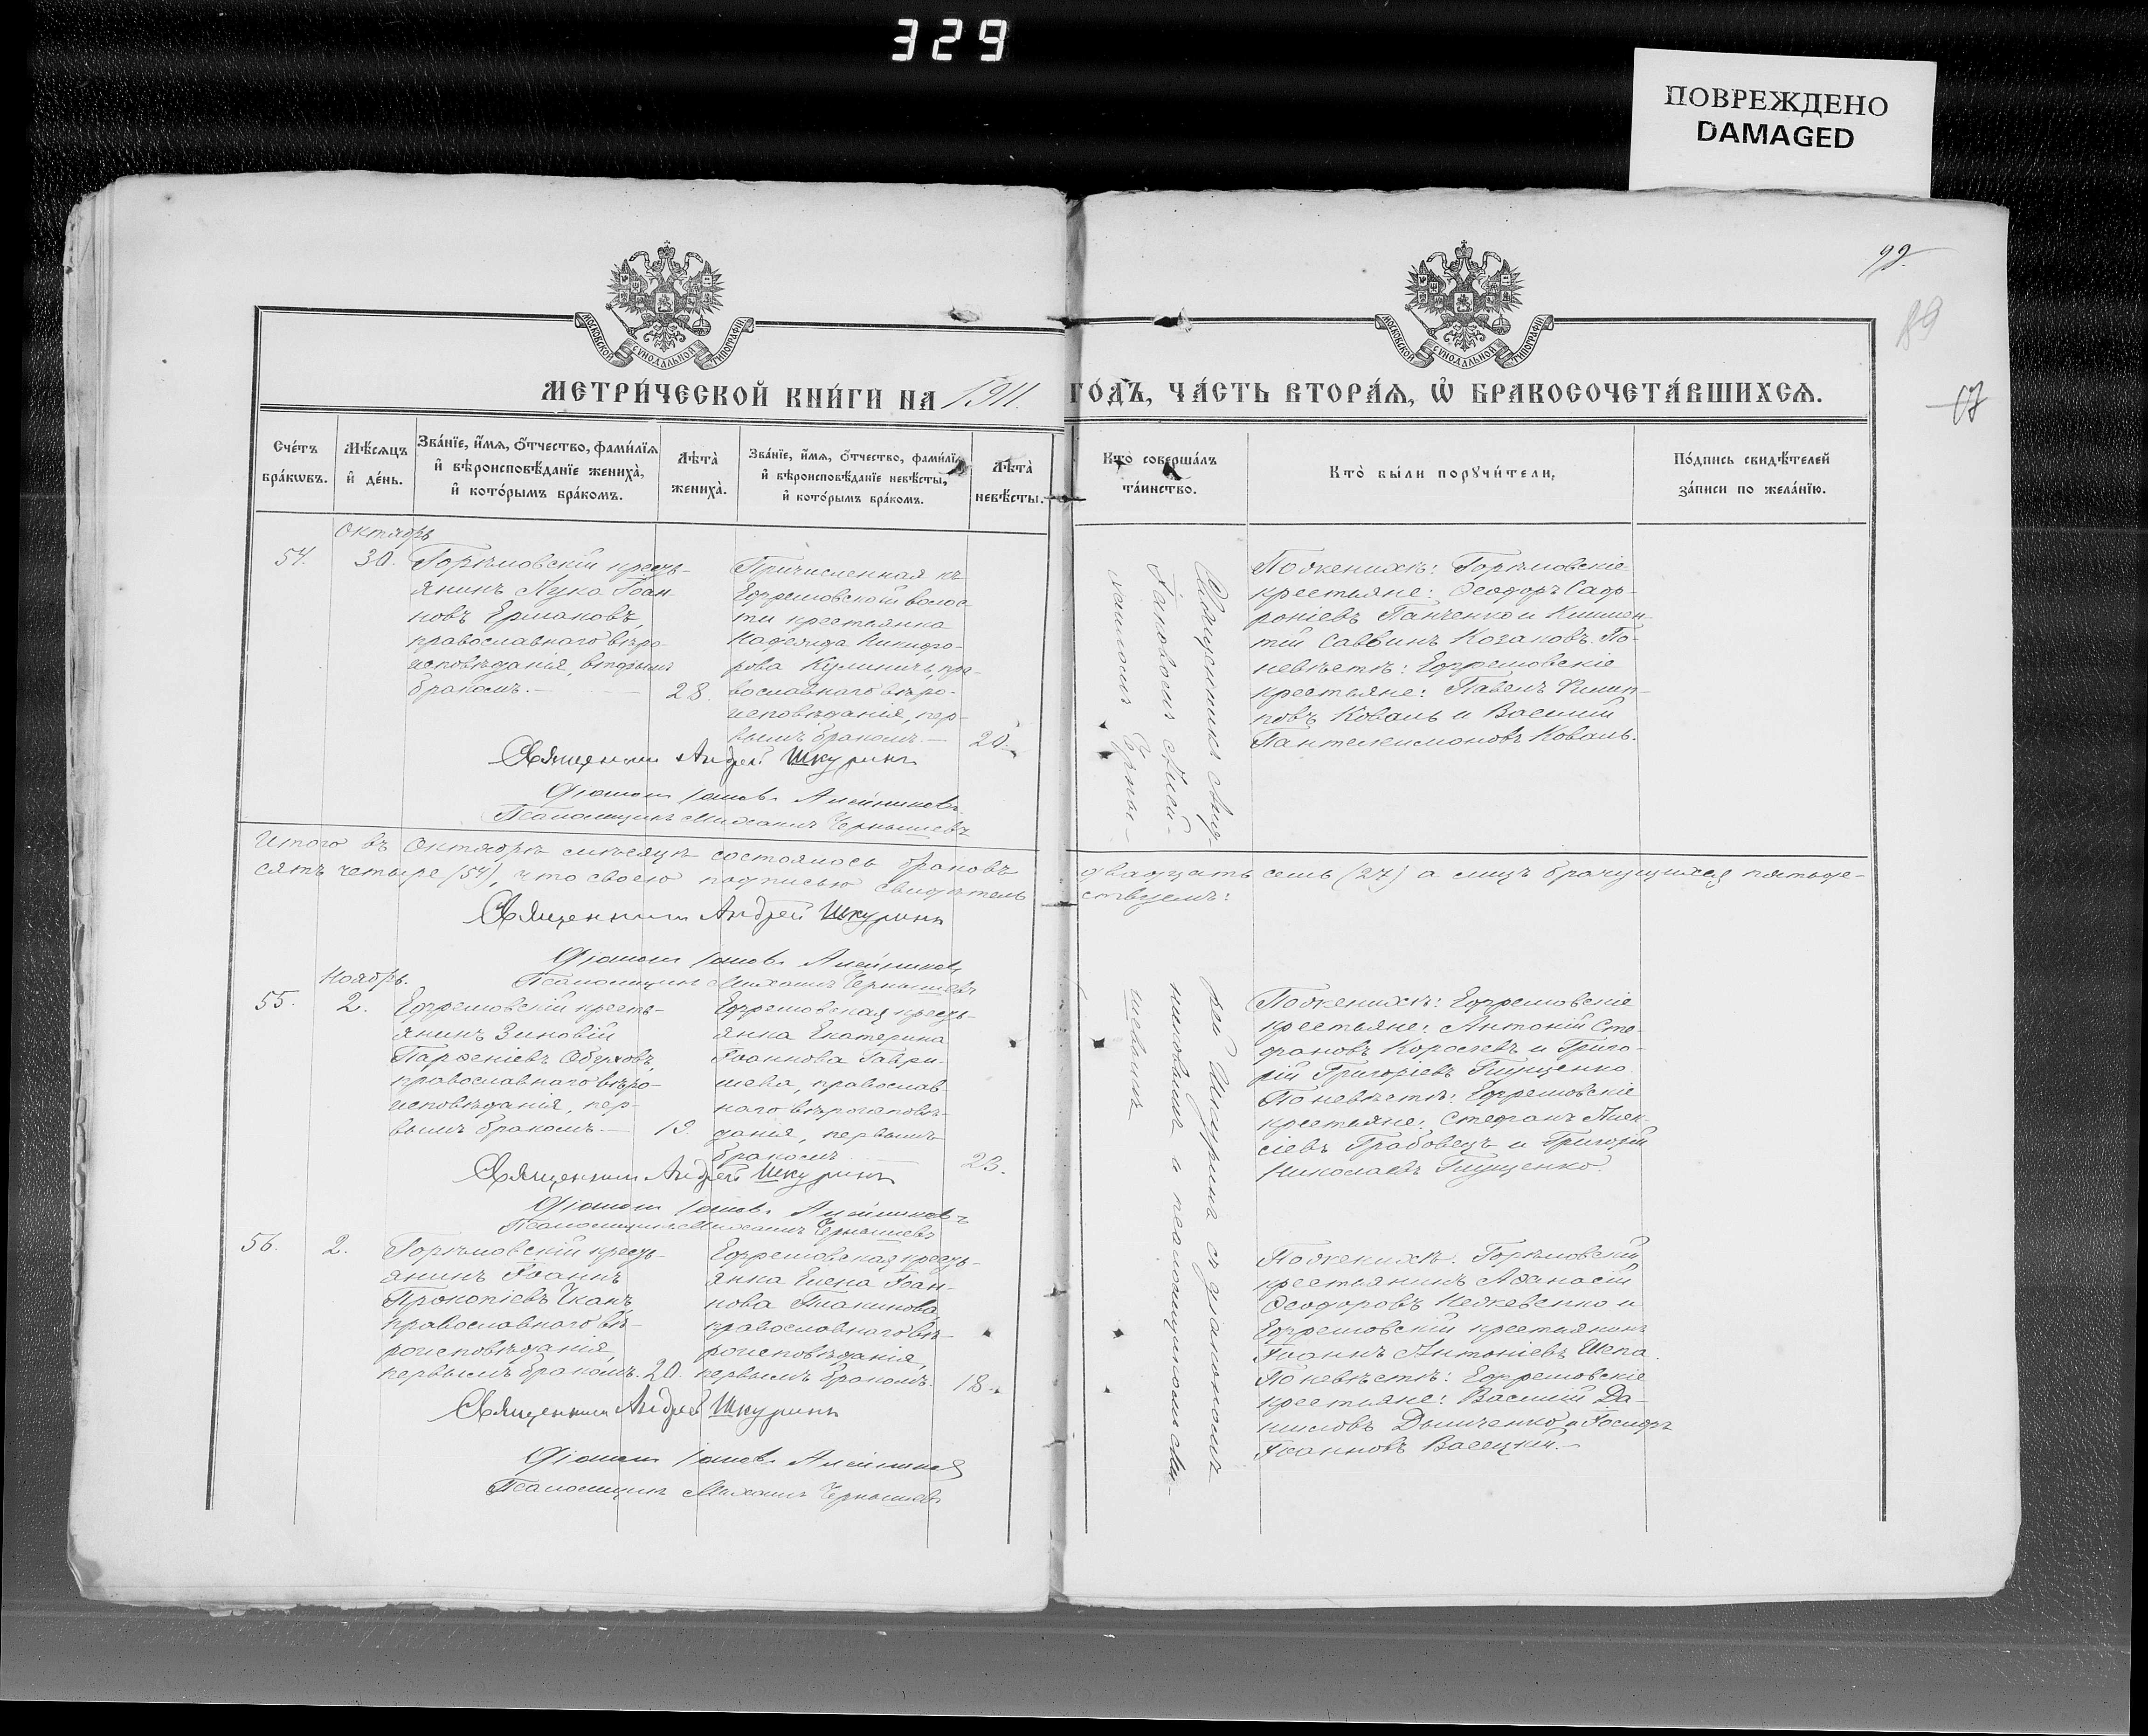 329
ПОВРЕЖДЕНО
DAMAGED
92
89
МОСКОВСКОЙ СѴНОДАЛЬНОЙ ТИПОГРАФІИ
МОСКОВСКОЙ СѴНОДАЛЬНОЙ ТИПОГРАФІИ
МЕТРИ́ЧЕСКОЙ КНИ́ГИ НА 1911. ГО́ДЪ, ЧА́СТЬ ВТОРА́Ѧ, Ѡ БРАКОСОЧЕТА́ВШИХСѦ.
Сче́тъ бра́кωвъ.
Мѣ́сѧцъ и де́нь.
Зва́нїе, и́мѧ, о́тчество, фами́лїѧ и вѣроисповѣ́данїе жениха̀, и кото́рымъ бра́комъ.
Лѣта̀ жениха̀.
Зва́нїе, и́мѧ, о́тчество, фами́лїѧ и вѣроисповѣ́данїе невѣ́сты, и кото́рымъ бра́комъ.
Лѣта̀ невѣ́сты.
Кто̀ соверша́лъ та́инство.
Кто̀ бы́ли порꙋчи́тели.
По́дпись свидѣ́телей за́писи по жела́нїю.
Октябрь
54.
30.
Горѣловскій кресть-
янинъ Лука Іоан-
новъ Ермаковъ,
православнаго вѣро-
исповѣданія, вторымъ
бракомъ.—
28.
Причисленная къ
Ефремовской волос-
ти крестьянка
Никифо-
рова Кулиничъ, пра-
вославнаго вѣро-
исповѣданія, пер-
вымъ бракомъ.—
20.
Священникомъ Анд-
Іаковомъ Алей-
Черны-
По женихѣ: Горѣловскіе
крестьяне: Ѳеодоръ Соф-
роніевъ Панченко и Климен-
тій Саввинъ Козаковъ. По
невѣстѣ: Ефремовскіе
крестьяне: Павелъ Филип-
повъ Коваль и Василий
Пантелеимоновъ Коваль.
Священникъ Андрей Шкуринъ
Діаконъ Іаковъ Алейниковъ
Псаломщикъ Михаилъ Чернышевъ
Итого въ Октябрѣ мѣсяцѣ состоялось браковъ двадцать семь (27) а лицъ брачущихся пятьде-
сятъ четыре (54), что своею подписью свидѣтельствуемъ:
Священникъ Андрей Шкуринъ
Діаконъ Іаковъ Алейниковъ
Псаломщикъ Михаилъ Чернышевъ
Ноябрь.
55.
2.
Ефремовскій кресть-
янинъ Зиновій
Парѳеніевъ Обуховъ,
православнаго вѣро-
исповѣданія, пер-
вымъ бракомъ.—
19.
Ефремовская кресть-
янка Екатерина
Іоаннова Гаври-
шева, православ-
наго вѣроисповѣ-
данія, первымъ
бракомъ
23.
рей Шкуринъ съ діакономъ
никовымъ и псаломщикомъ Ми-
шевымъ
По женихѣ: Ефремовскіе
крестьяне: Антоній Сте-
фановъ Королевъ и Григо-
рій Григоріевъ Глущенко.
По невѣстѣ: Ефремовскіе
крестьяне: Стефанъ Алек-
сіевъ Грабовецъ и Григорій
Николаевъ Глущенко.
Священникъ Андрей Шкуринъ
Діаконъ Іаковъ Алейниковъ
Псаломщикъ Михаилъ Чернышевъ
56.
2.
Горѣловскій кресть-
янинъ Іоаннъ
Прокопіевъ Чканъ
православнаго вѣ-
роисповѣданія,
первымъ бракомъ.
20.
Ефремовская кресть-
янка Елена Іоан-
нова Плакинова
православнаго вѣ-
роисповѣданія,
первымъ бракомъ.
18.
По женихѣ: Горѣловскій
крестьянинъ Аѳанасій
Ѳеодоровъ и
Ефремовскій крестьянинъ
Іоаннъ Антоніевъ Шепа.
По невѣстѣ: Ефремовскіе
крестьяне: Василій Да-
ниловъ Дымченко и Іосифъ
Іоанновъ Васецкій.—
Священникъ Андрей Шкуринъ
Діаконъ Іаковъ Алейниковъ
Псаломщикъ Михаилъ Чернышевъ